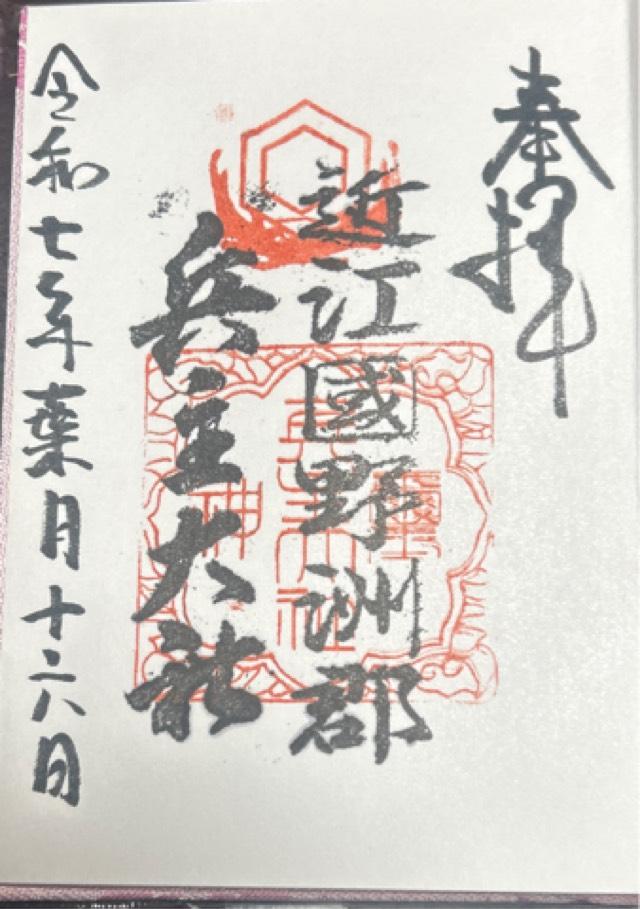 奉拝
近江國野洲郡
兵主大神
令和七年葉月十六日